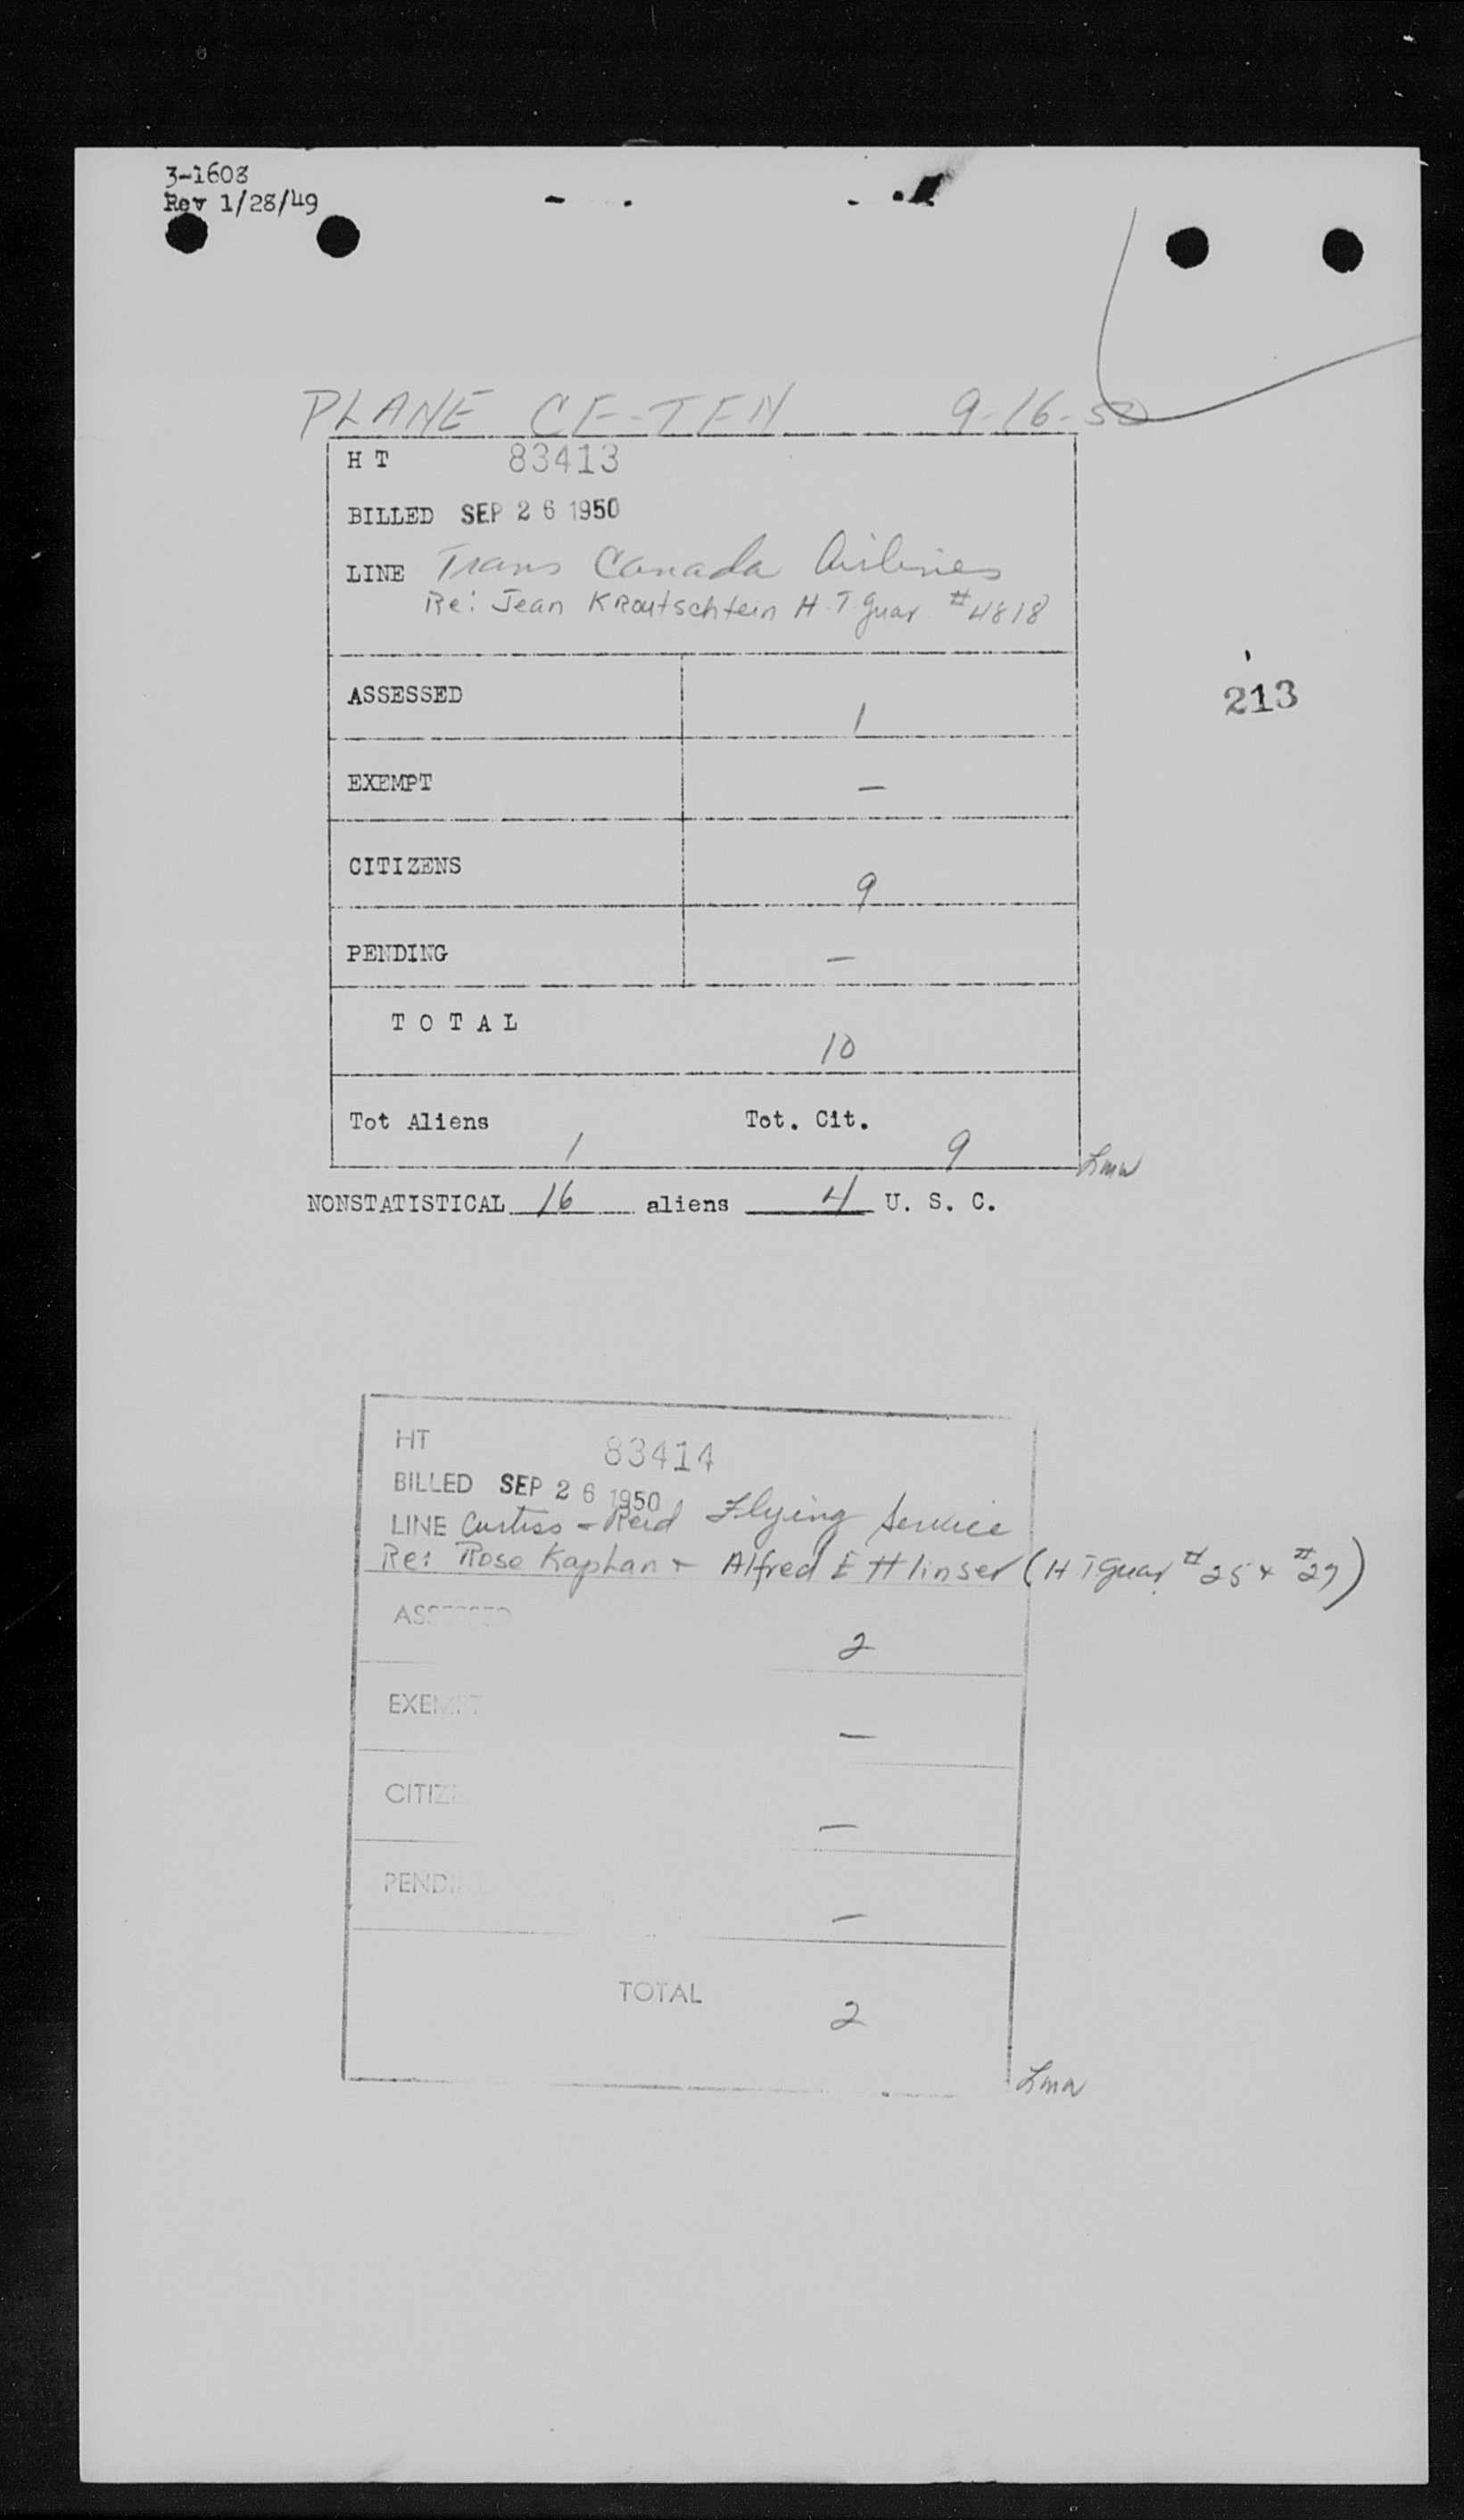 3-1603
Rev 1/28/49
PLANE CF-TFN 9-16-50
H T 83413
BILLED SEP 26 1950
LINE Trans Canada Airlines
Re: Jean Kroutschtein H.T guar #4818
213
ASSESSED 1
EXEMPT —
CITIZENS 9
PENDING —
T O T A L 10
Tot Aliens 1 Tot. Cit. 9
Lmw
NONSTATISTICAL 16 aliens 4 U. S. C.
HT 83414
BILLED SEP 26 1950
LINE Curtiss-Reid Flying Service
Re: Rose Kaphan + Alfred Ettlinser (H T guar #25 + #27)
ASSESSED 2
EXEMPT —
CITIZE —
PENDIN —
TOTAL 2
Lmw